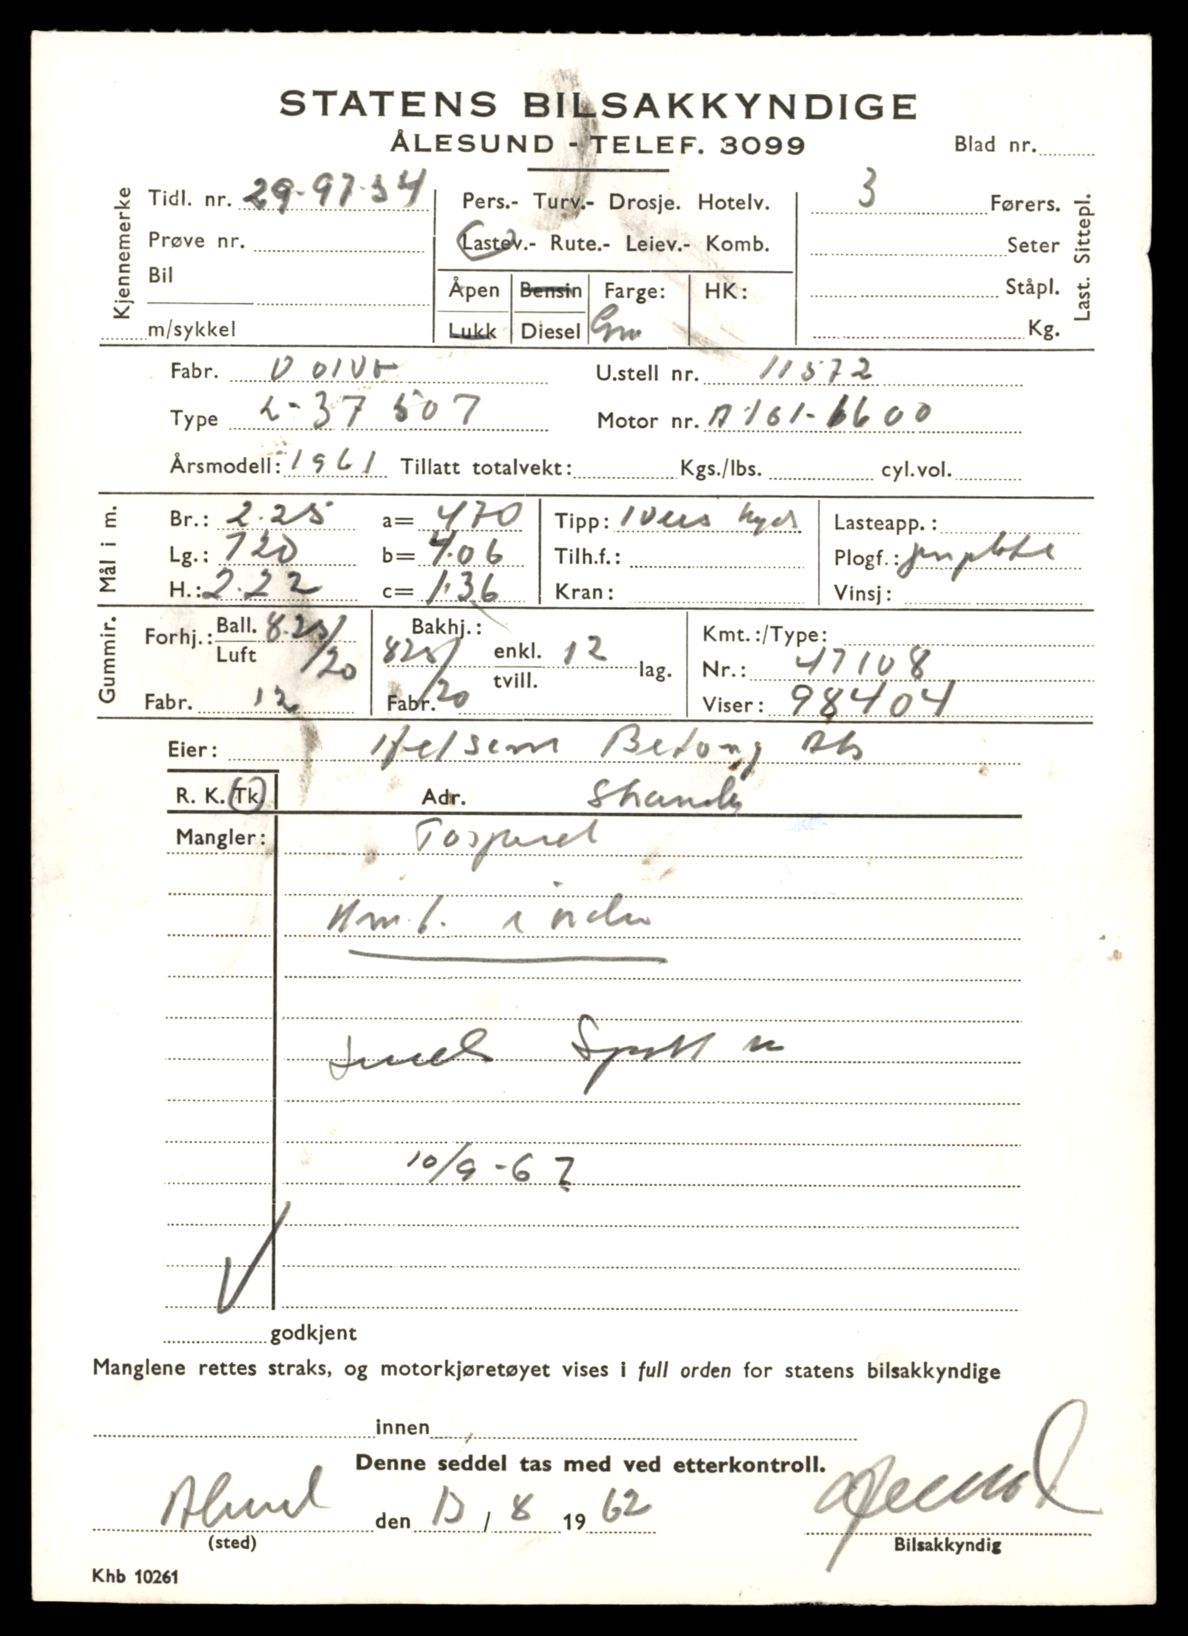 STATENS BILSAKKYNDIGE
ÅLESUND - TELEF. 3099
Blad nr.
Kjennemerke
Tidl. nr. 29-97-34
Prøve nr.
Bil
m/sykkel
Pers.- Turv.- Drosje. Hotelv.
Lastev.- Rute.- Leiev.- Komb.
Åpen Bensin Farge: HK:
Lukk Diesel
3 Førers.
Seter
Ståpl.
Kg.
Last. Sittepl.
Fabr. Volvo U.stell nr. 11572
Type L-37 507 Motor nr. A161-6600
Årsmodell: 1961 Tillatt totalvekt: Kgs./lbs. cyl.vol.
Mål i m.
Br.: 2.25 a= 470 Tipp: Lasteapp.:
Lg.: 720 b= 4.06 Tilh.f.: Plogf.:
H.: 2.22 c= 1.36 Kran: Vinsj:
Gummir.
Forhj.: Ball. 8.25/20
Luft
Fabr. 12
Bakhj.: 825/20 enkl. 12 lag.
tvill.
Fabr.
Kmt.:/Type:
Nr.: 47108
Viser: 98404
Eier: Betong
R. K. Tk. Adr.
Mangler:
i orden
10/9-62
godkjent
Manglene rettes straks, og motorkjøretøyet vises i full orden for statens bilsakkyndige
innen
Denne seddel tas med ved etterkontroll.
den / 8 1962
(sted)
Bilsakkyndig
Khb 10261